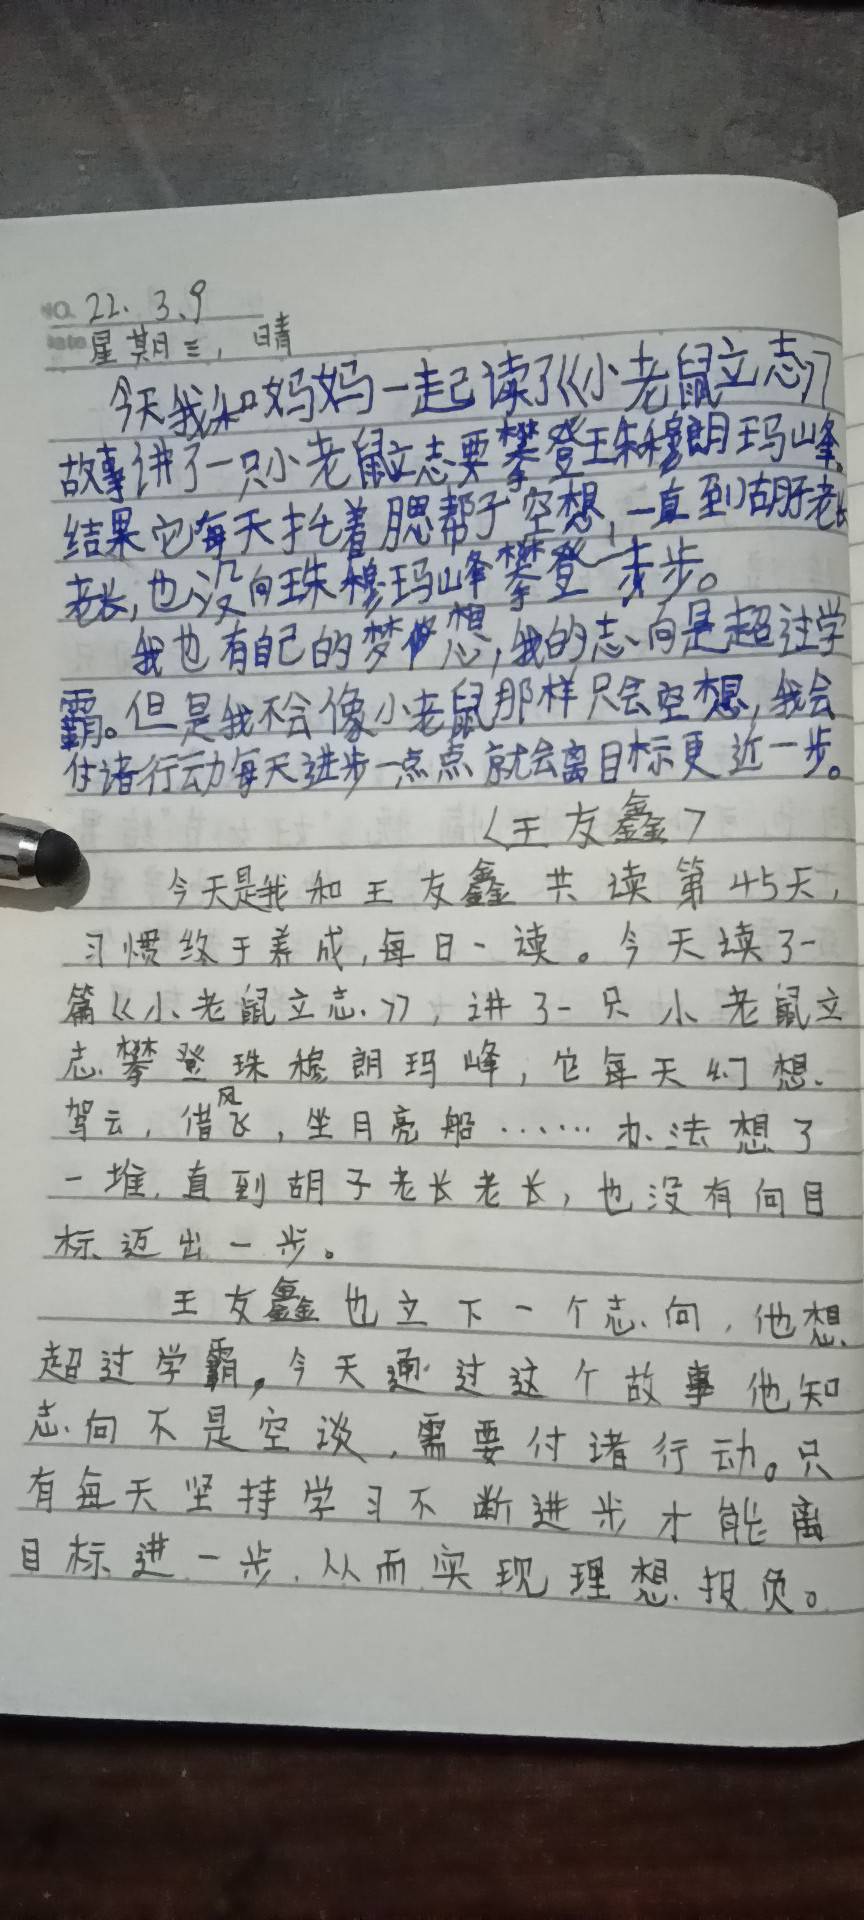 NO. 22. 3. 9
Date 星期三，晴
今天我和妈妈一起读了《小老鼠立志》
故事讲了一只小老鼠立志要攀登珠穆朗玛峰，
结果它每天托着腮帮子空想，一直到胡子老长
老长，也没向珠穆玛峰攀登一步步。
我也有自己的梦想，我的志向是超过学
霸。但是我不会像小老鼠那样只会空想，我会
付诸行动每天进步一点点就会离目标更近一步。
〈王友鑫〉
今天是我和王友鑫共读第45天，
习惯终于养成，每日一读。今天读了一
篇《小老鼠立志》，讲了一只小老鼠立
志攀登珠穆朗玛峰，它每天幻想
驾云，借风飞，坐月亮船……办法想了
一堆，直到胡子老长老长，也没有向目
标迈出一步。
王友鑫也立下一个志向，他想
超过学霸，今天通过这个故事他知
志向不是空谈，需要付诸行动。只
有每天坚持学习不断进步才能离
目标进一步，从而实现理想报负。